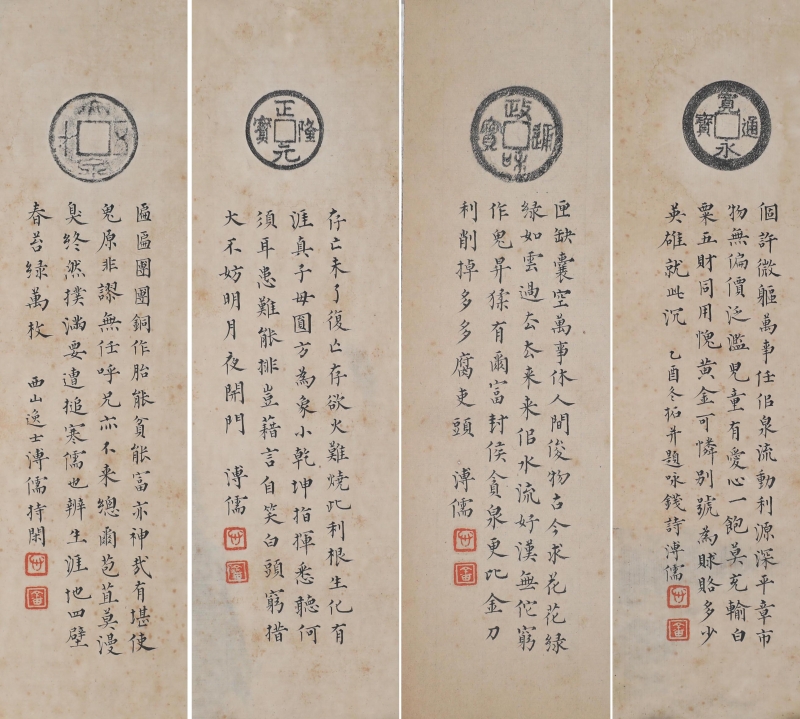 寬永通寶
個許微軀萬事任佢泉流動利源深平章市
物無偏價泛濫兒童有愛心一飽莫充輸白
粟五財同用愧黃金可憐別號為賕賂多少
英雄就此沉 乙酉冬拓并題咏錢詩溥儒
政和通寶
匣缺囊空萬事休人間俊物古今求花花綠
綠如雲過去去來来佢水流好漢無佗窮
作鬼昇猱有爾富封侯貪泉更比金刀
利削掉多多腐吏頭 溥儒
正隆元寶
存亡未了復亡存欲火難燒此利根生化有
涯真子母圓方為象小乾坤指揮悉聽何
須耳患難能排豈藉言自笑白頭窮措
大不妨明月夜開門 溥儒
大泉五十
區區團團銅作胎能貧能富亦神哉有堪使
鬼原非謬無任呼兄亦不来總爾苞苴莫漫
臭終然撲滿要遭搥寒儒也辦生涯地四壁
春苔綠萬枚 西山逸士溥儒持閑